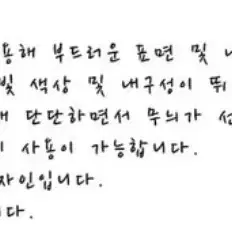 용해 부드러운 표면 및
빛 색상 및 내구성이 뛰
단단하면서 무늬가
사용이 가능합니다.
자인입니다.
니다.